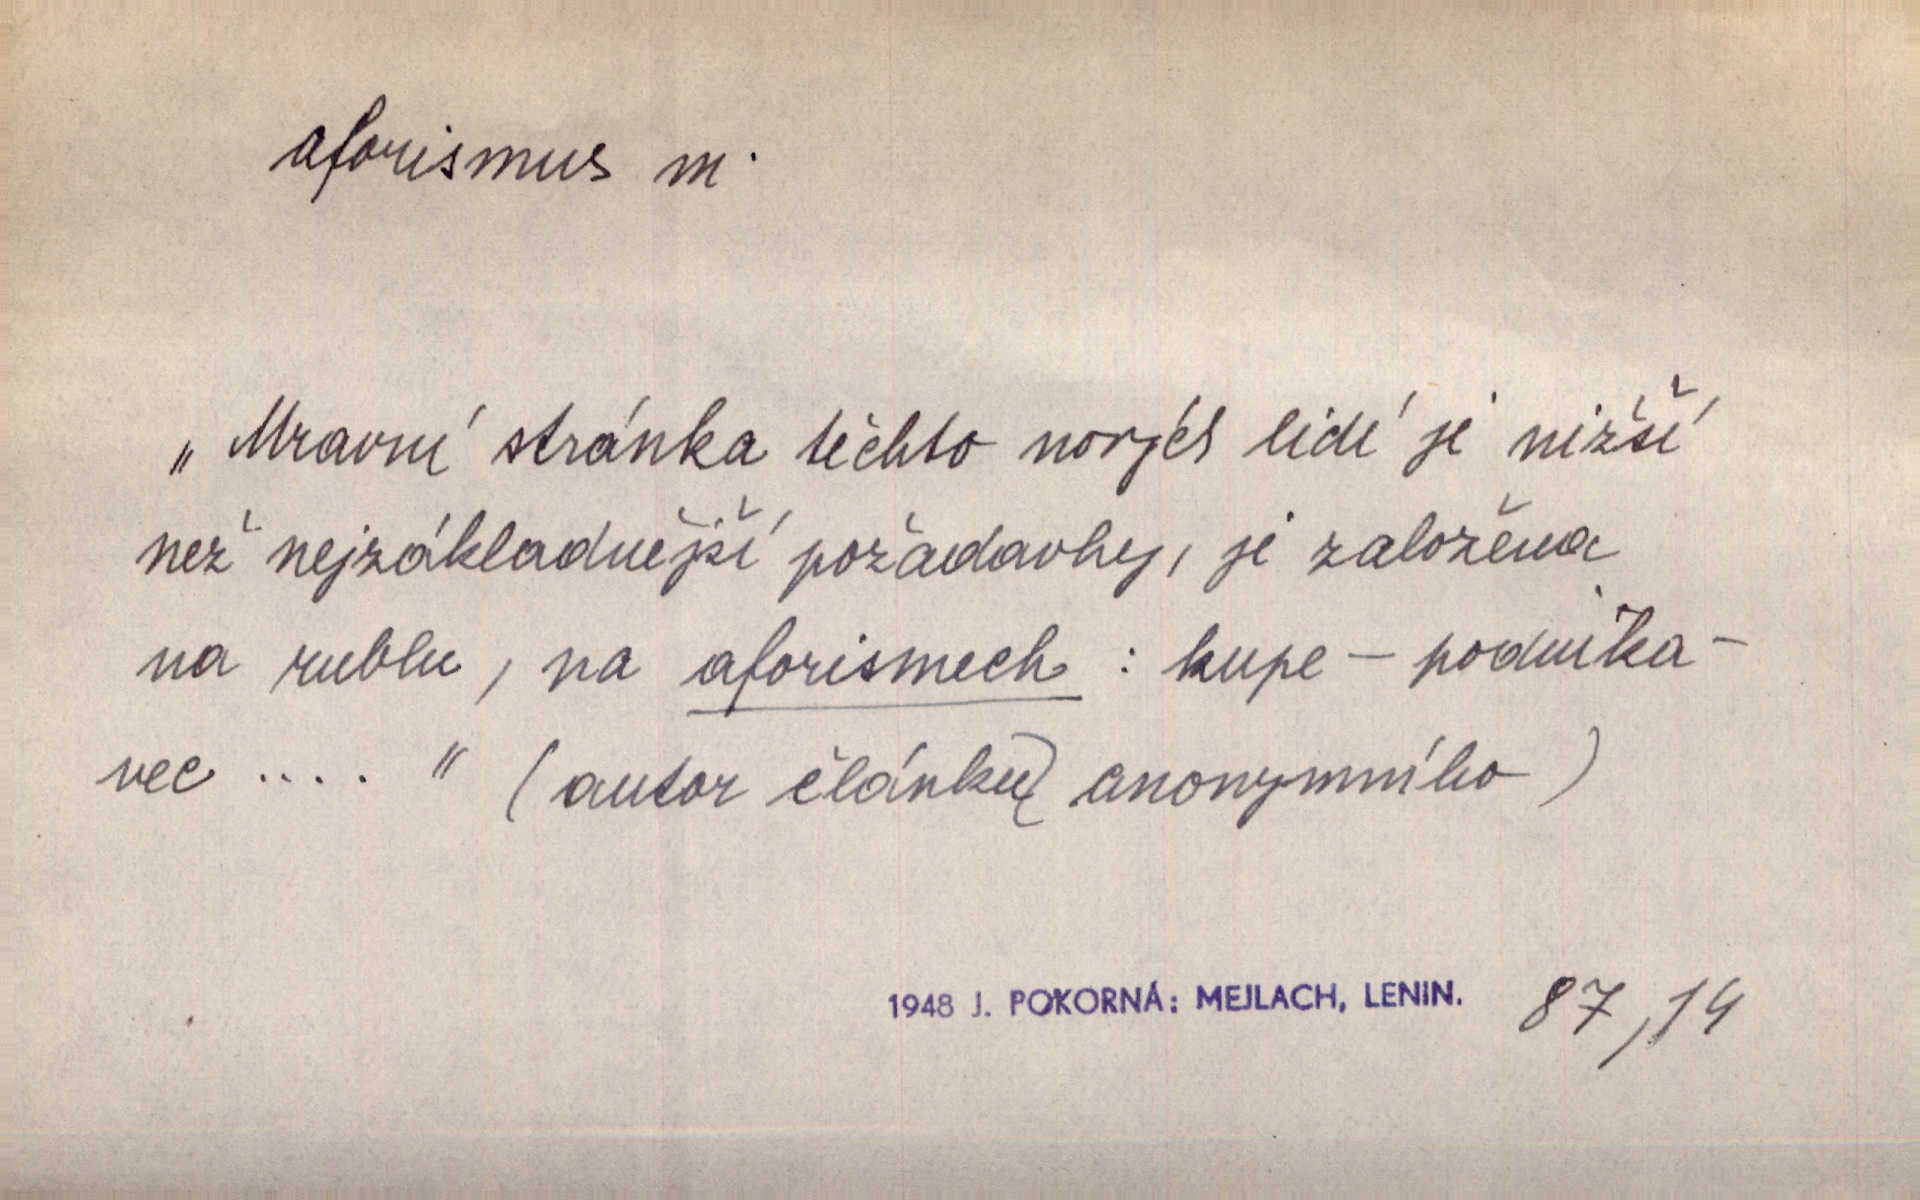 aforismus m.
„Mravní stránka těchto nových lidí je nižší
než nejzákladnější požadavky, je založena
na rublu, na aforismech : kupe – podnika-
vec .... " (autor článku) anonymního)
1948 J. POKORNÁ: MEJLACH, LENIN. 87,14